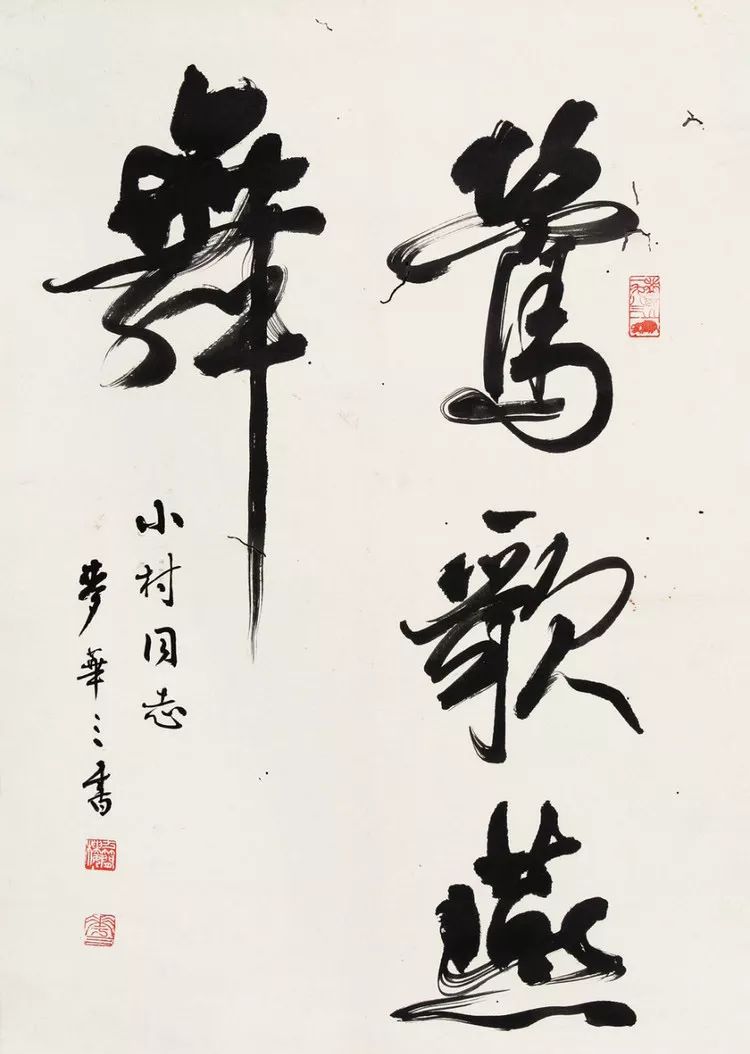 鶯歌燕
舞
小村同志
麥華三書